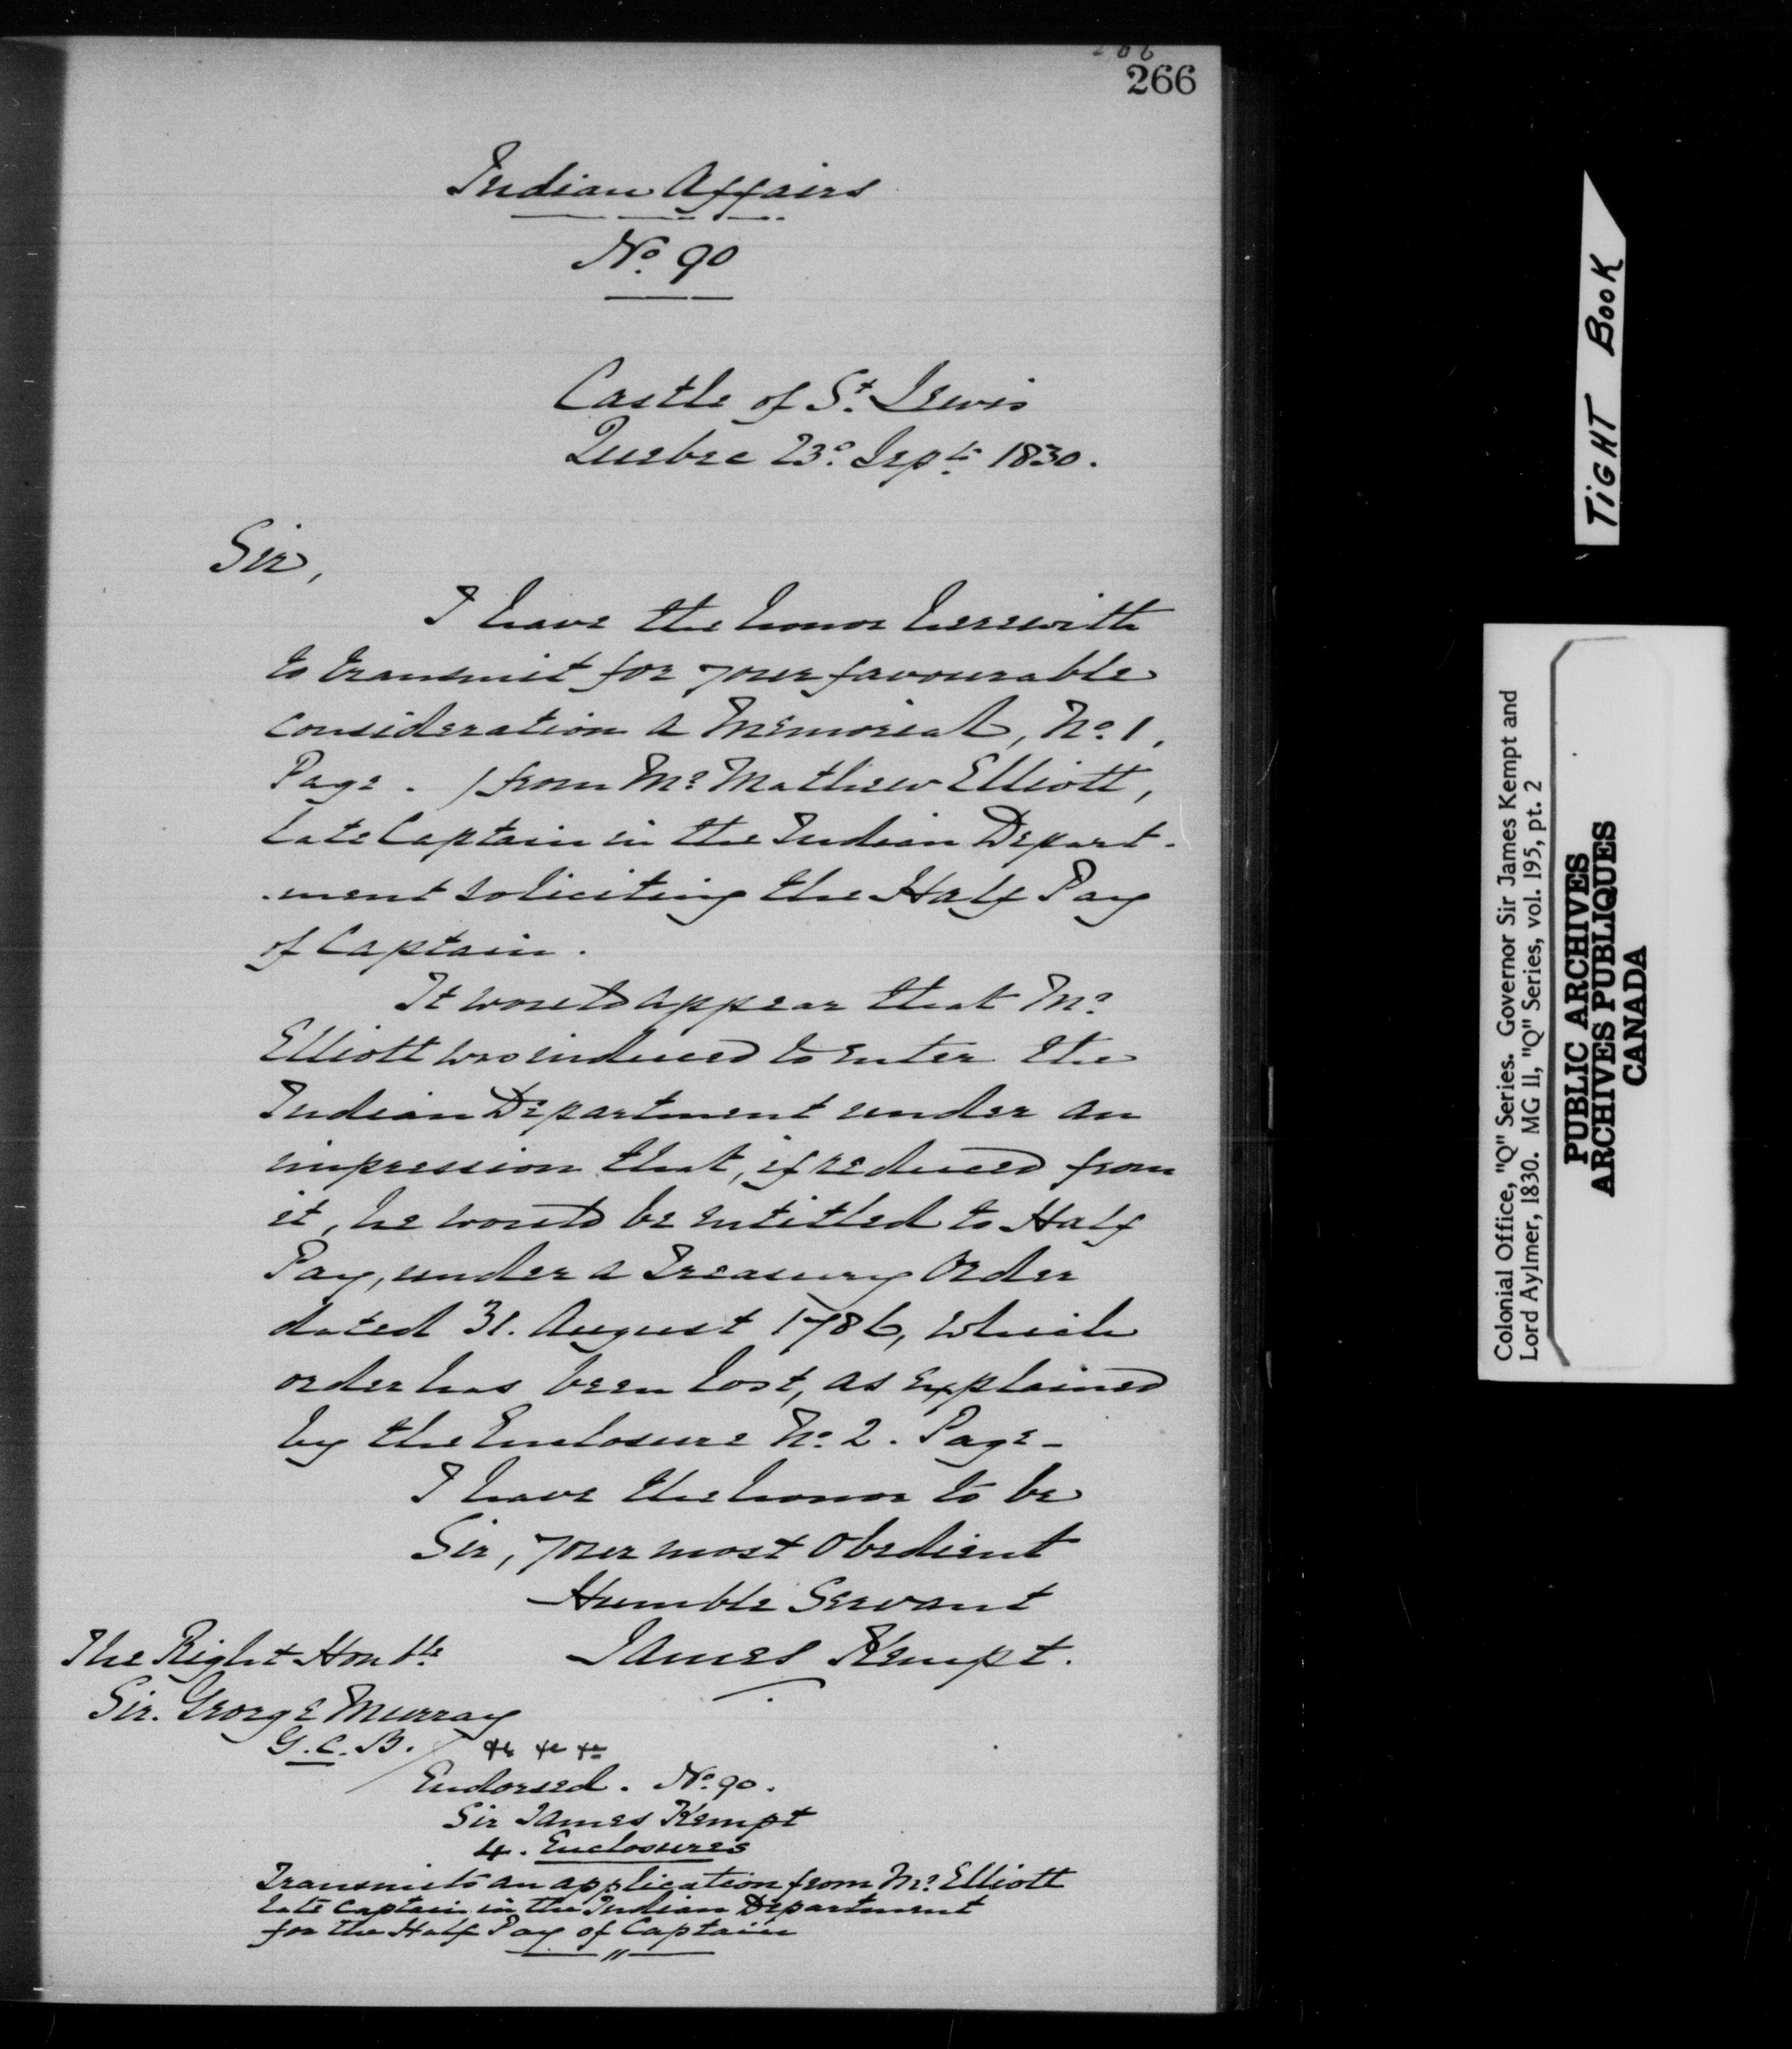 266
266
Indian Affairs
No. 90
Castle of St. Lewis
Quebec 23d. Septr. 1830.
Sir,
I have the honor herewith
to transmit for your favourable
consideration a Memorial, No. 1,
Page . / from Mr Mathew Elliott,
late Captain in the Indian Depart-
-ment soliciting the Half Pay
of Captain.
It would appear that Mr
Elliott was induced to enter the
Indian Department under an
impression that, if reduced from
it, he would be entitled to Half
Pay, under a Treasury Order
dated 31. August 1786, which
order has been lost, as explained
by the Enclosure No. 2. Page -
I have the honor to be
Sir, your most obedient
Humble Servant
James Kempt.
The Right Honble
Sir. George Murray
G.C.B. / &c &c &c
Endorsed. No. 90.
Sir James Kempt
4. Enclosures
Transmits an application from Mr. Elliott
late Captain in the Indian Department
for the Half Pay of Captain
TiGHT BOOK
Colonial Office, "Q" Series. Governor Sir James Kempt and
Lord Aylmer, 1830. MG 11, "Q" Series, vol. 195, pt. 2
PUBLIC ARCHIVES
ARCHIVES PUBLIQUES
CANADA